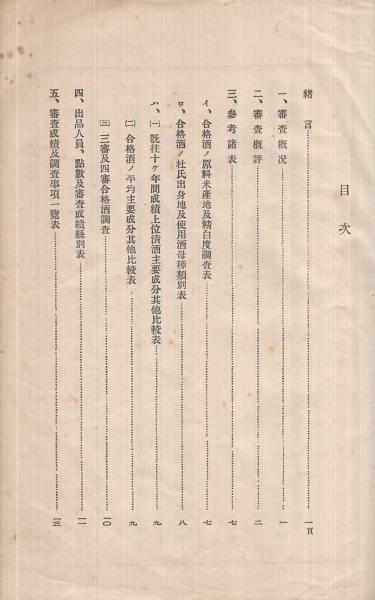 目次
緒言…………一頁
一、審査概況…………一
二、審査概評…………二
三、參考諸表…………七
イ、合格酒ノ原料米產地及精白度調査表…………七
ロ、合格酒ノ杜氏出身地及使用酒母種類別表…………八
ハ、㈠ 既往十ケ年間成績上位淸酒主要成分其他比較表…………九
㈡ 合格酒ノ平均主要成分其他比較表…………九
㈢ 三審及四審合格酒調査…………一〇
四、出品人員、點數及審査成績縣別表…………一一
五、審査成績及調査事項一覽表…………一三